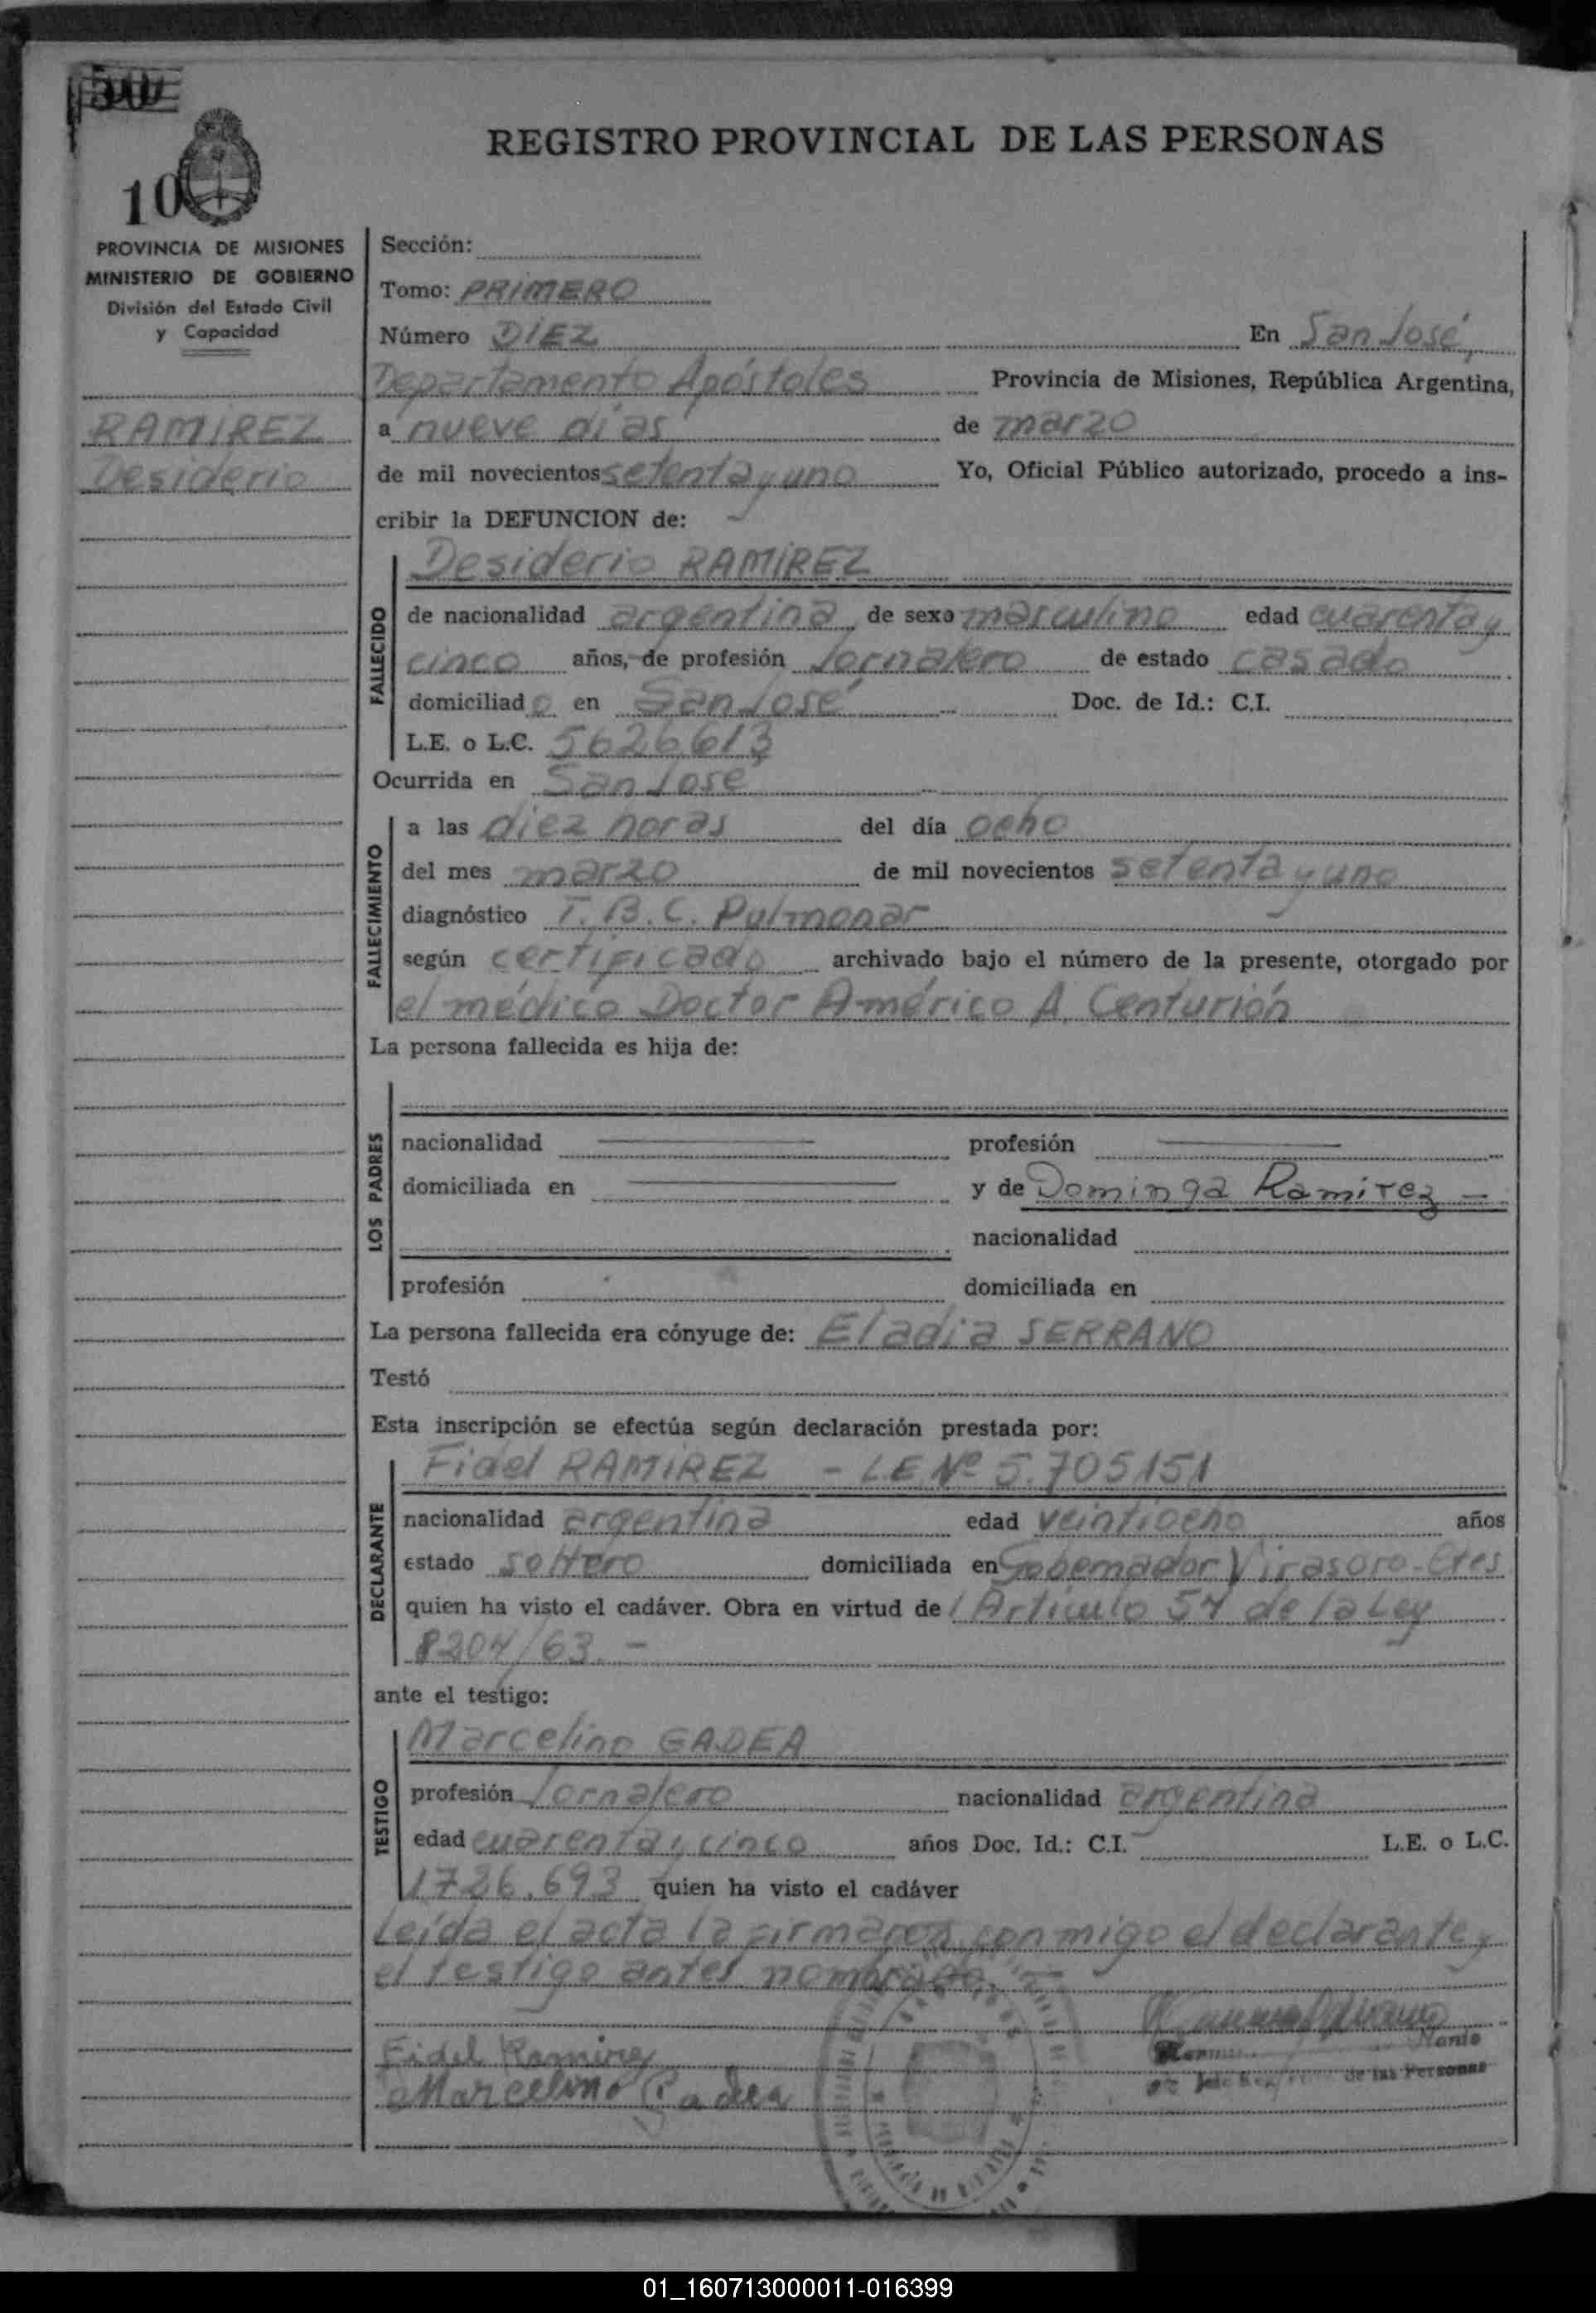 50
10
REGISTRO PROVINCIAL DE LAS PERSONAS
PROVINCIA DE MISIONES
MINISTERIO DE GOBIERNO
División del Estado Civil
y Capacidad
RAMIREZ
Desiderio
Sección:
Tomo: PRIMERO
Número DIEZ En San José,
Departamento Apóstoles Provincia de Misiones, República Argentina,
a nueve días de marzo
de mil novecientos setenta y uno Yo, Oficial Público autorizado, procedo a ins-
cribir la DEFUNCION de:
Desiderio RAMIREZ
FALLECIDO
de nacionalidad argentina de sexo masculino edad cuarenta y
cinco años, de profesión Jornalero de estado casado
domiciliado en San José Doc. de Id.: C.I.
L.E. o L.C. 5626613
Ocurrida en San José
FALLECIMIENTO
a las diez horas del día ocho
del mes marzo de mil novecientos setenta y uno
diagnóstico T.B.C. Pulmonar
según certificado archivado bajo el número de la presente, otorgado por
el médico Doctor Américo A. Centurión
La persona fallecida es hija de:
LOS PADRES
nacionalidad profesión
domiciliada en y de Dominga Ramírez —
nacionalidad
profesión domiciliada en
La persona fallecida era cónyuge de: Eladia SERRANO
Testó
Esta inscripción se efectúa según declaración prestada por:
Fidel RAMIREZ - L.E Nº 5.705151
DECLARANTE
nacionalidad argentina edad veintiocho años
estado soltero domiciliada en Gobernador Virasoro - Ctes
quien ha visto el cadáver. Obra en virtud de l Artículo 54 de la Ley
8204/63.-
ante el testigo:
Marcelino GADEA
TESTIGO
profesión Jornalero nacionalidad argentina
edad cuarenta y cinco años Doc. Id.: C.I. L.E. o L.C.
1726.693 quien ha visto el cadáver
Leída el acta la firmaron conmigo el declarante y
el testigo antes nombrado. —
Fidel Ramirez
Marcelino Gadea
de las Personas
01_160713000011-016399